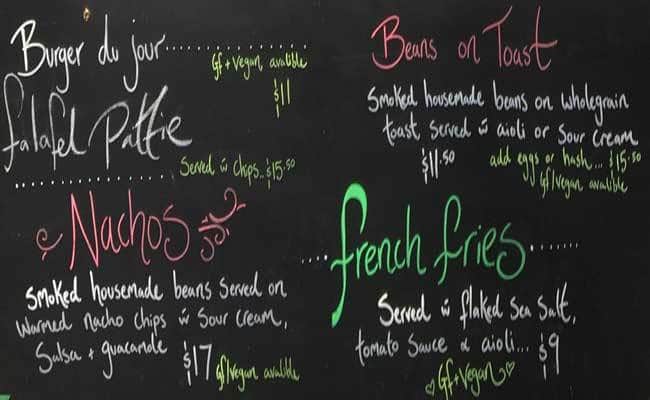 Burger du jour
Gf + Vegan avalible
$11
falafel Pattie
Served w chips.. $15.50
Nachos
Smoked housemade beans Served on
Warmed nacho chips w Sour cream,
Salsa + guacamole $17 gf/Vegan avalible
Beans on Toast
Smoked housemade beans on wholegrain
toast Served w aioli or Sour cream
$11.50 add eggs or hash... $15.50
Gf/Vegan avalible
french fries
Served w flaked Sea Salt,
tomato Sauce & aioli... $9
Gf + Vegan